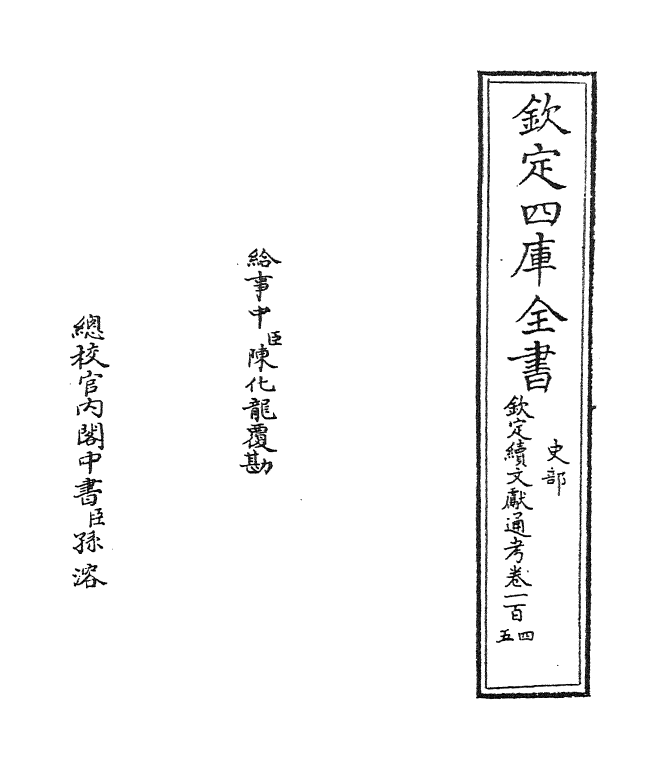 欽定四庫全書
史部
欽定續文獻通考卷一百四五
給事中臣陳化龍覆勘
總校官內閣中書臣孫溶